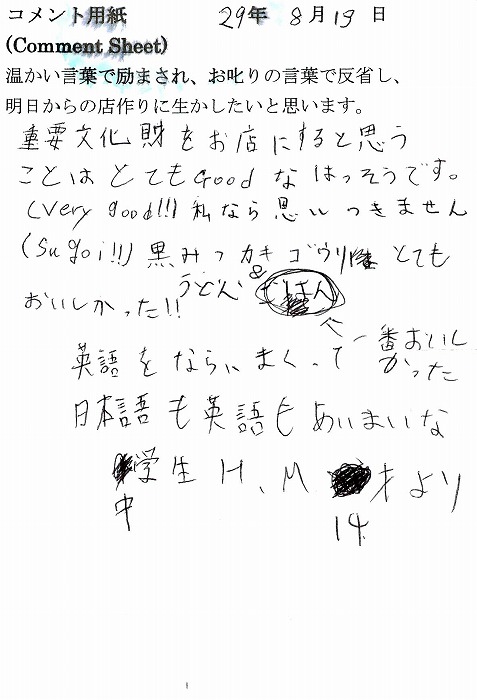 コメント用紙 29年 8月19日
(Comment Sheet)
温かい言葉で励まされ、お叱りの言葉で反省し、
明日からの店作りに生かしたいと思います。
重要文化財をお店にすると思う
ことはとてもGoodなはっそうです。
(Very good!!!) 私なら思いつきません
(Sugoi!!) 黒みつカキゴウリ とても
うどん & ごはん
おいしかった!!
一番おいし
かった
英語をならいまくって
日本語も英語もあいまいな
学生 H、M 才より
中
14